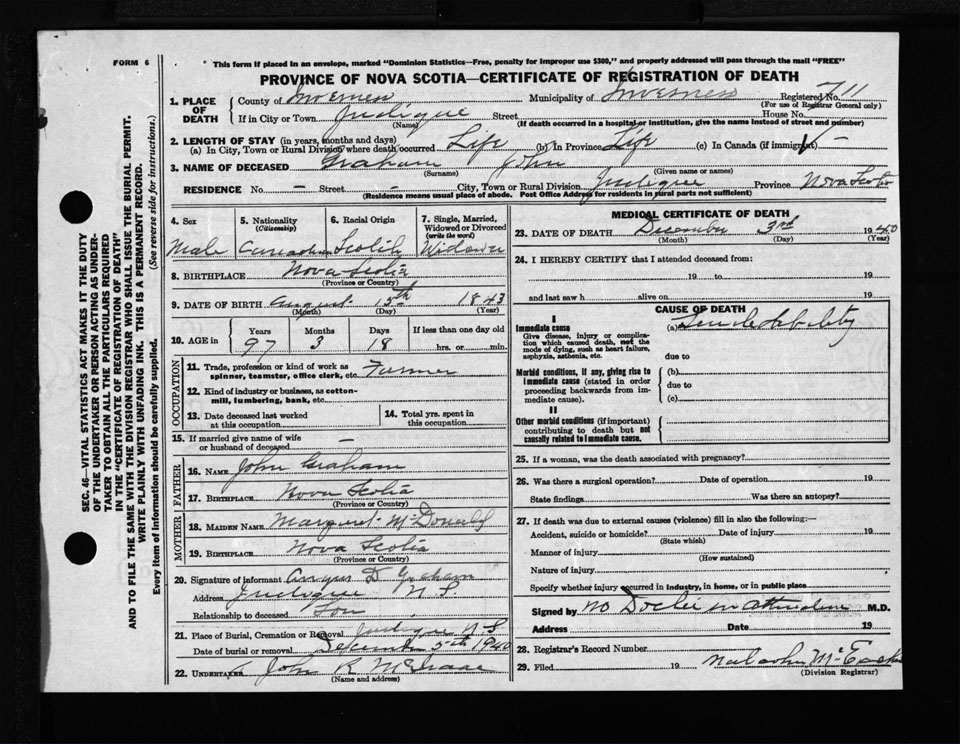 FORM 6
This form if placed in an envelope, marked "Dominion Statistics—Free, penalty for improper use $300," and properly addressed will pass through the mail "FREE"
PROVINCE OF NOVA SCOTIA—CERTIFICATE OF REGISTRATION OF DEATH
1. PLACE OF DEATH
County of Inverness Municipality of Inverness Registered No. 711
(For use of Registrar General only)
If in City or Town Judique Street House No.
(Name) (If death occurred in a hospital or institution, give the name instead of street and number)
2. LENGTH OF STAY (in years, months and days)
(a) In City, Town or Rural Division where death occurred Life (b) In Province Life (c) In Canada (if immigrant) –
3. NAME OF DECEASED Graham John
(Surname) (Given name or names)
RESIDENCE No. – Street – City, Town or Rural Division Judique Province Nova Scotia
(Residence means usual place of abode. Post Office Address for residents in rural parts not sufficient)
4. Sex
Male
5. Nationality
(Citizenship)
Canadian
6. Racial Origin
Scotch
7. Single, Married, Widowed or Divorced
(write the word)
Widower
8. BIRTHPLACE Nova Scotia
(Province or Country)
9. DATE OF BIRTH August 15th 1843
(Month) (Day) (Year)
10. AGE in
Years Months Days If less than one day old
97 3 18 hrs. or min.
OCCUPATION
11. Trade, profession or kind of work as
spinner, teamster, office clerk, etc. Farmer
12. Kind of industry or business, as cotton-
mill, lumbering, bank, etc.
13. Date deceased last worked
at this occupation
14. Total yrs. spent in
this occupation
15. If married give name of wife
or husband of deceased –
FATHER
16. NAME John Graham
17. BIRTHPLACE Nova Scotia
MOTHER
18. MAIDEN NAME Margaret McDonald
19. BIRTHPLACE Nova Scotia
(Province or Country)
20. Signature of informant Angus D Graham
Address Judique N.S.
Relationship to deceased Son
21. Place of Burial, Cremation or Removal Judique N.S
Date of burial or removal December 5th 1940
22. UNDERTAKER John R McIsaac
(Name and address)
MEDICAL CERTIFICATE OF DEATH
23. DATE OF DEATH December 3rd 1940
(Month) (Day) (Year)
24. I HEREBY CERTIFY that I attended deceased from:
19 to 19
and last saw h alive on 19
CAUSE OF DEATH
I
Immediate cause
Give disease, injury or complication which caused death, not the mode of dying, such as heart failure, asphyxia, asthenia, etc.
(a) Senile debility
due to
Morbid conditions, if any, giving rise to immediate cause (stated in order proceeding backwards from immediate cause).
(b)
due to
(c)
II
Other morbid conditions (if important) contributing to death but not causally related to immediate cause.
25. If a woman, was the death associated with pregnancy?
26. Was there a surgical operation? Date of operation 19
State findings Was there an autopsy?
27. If death was due to external causes (violence) fill in also the following:—
Accident, suicide or homicide? Date of injury 19
(State which)
Manner of injury
(How sustained)
Nature of injury
Specify whether injury occurred in industry, in home, or in public place
Signed by no Doctor in attendance M.D.
Address Date 19
28. Registrar's Record Number
29. Filed 19 Malcolm
(Division Registrar)
SEC. 46—VITAL STATISTICS ACT MAKES IT THE DUTY
OF THE UNDERTAKER OR PERSON ACTING AS UNDER-
TAKER TO OBTAIN ALL THE PARTICULARS REQUIRED
IN THE "CERTIFICATE OF REGISTRATION OF DEATH"
AND TO FILE THE SAME WITH THE DIVISION REGISTRAR WHO SHALL ISSUE THE BURIAL PERMIT.
WRITE PLAINLY WITH UNFADING INK. THIS IS A PERMANENT RECORD.
Every item of Information should be carefully supplied. (See reverse side for instructions.)